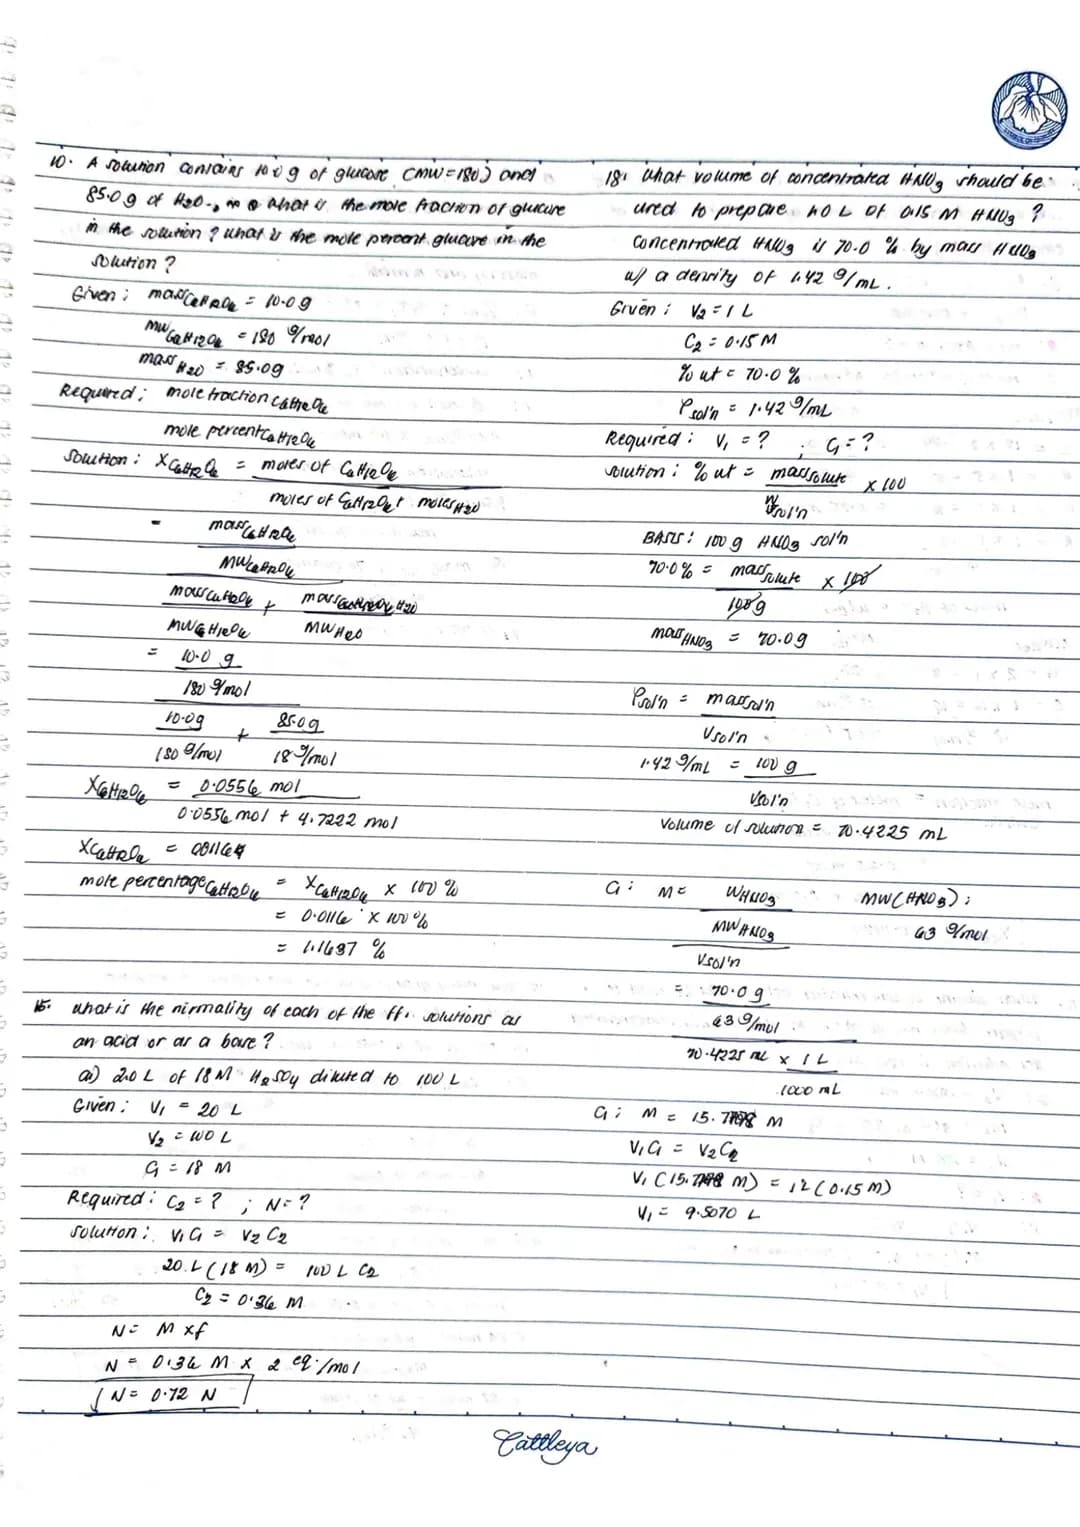 10. A solution contains 10.0 g of glucose (MW=180) and
85.0 g of H2O., what is the mole fraction of glucose
in the solution? What is the mole percent glucose in the
solution?
Given: massC6H12O6 = 10.0 g
MWC6H12O6 = 180 g/mol
massH2O = 85.0g
Required: mole fraction C6H12O6
mole percent C6H12O6
Solution: XC6H12O6 = moles of C6H12O6
moles of C6H12O6 + moles H2O
= massC6H12O6
MWC6H12O6
massC6H12O6 + mass H2O
MWC6H12O6 MWH2O
= 10.0 g
180 g/mol
10.0g + 85.0g
180 g/mol 18 g/mol
XC6H12O6 = 0.0556 mol
0.0556 mol + 4.7222 mol
XC6H12O6 =
mole percentage C6H12O6 = XC6H12O6 x 100 %
= 0.0116 x 100 %
= 1.1637 %
15. What is the nirmality of each of the ff. solutions as
an acid or as a base?
a) 2.0 L of 18 M H2SO4 diluted to 100 L
Given: V1 = 20 L
V2 = 100 L
C1 = 18 M
Required: C2 = ? ; N = ?
Solution: V1C1 = V2C2
20.L (18 M) = 100 L C2
C2 = 0.36 M
N = M x f
N = 0.36 M x 2 eq./mol
N = 0.72 N
18. What volume of concentrated HNO3 should be
used to prepare 1.0 L of 0.15 M HNO3 ?
Concentrated HNO3 is 70.0 % by mass HNO3
w/ a density of 1.42 g/mL.
Given: V2 = 1 L
C2 = 0.15 M
% wt = 70.0 %
ρsol'n = 1.42 g/mL
Required: V1 = ? ; C1 = ?
Solution: % wt = mass solute x 100
Wsol'n
BASIS: 100 g HNO3 sol'n
70.0% = mass solute x 100
100 g
mass HNO3 = 70.0g
ρsol'n = mass sol'n
Vsol'n
1.42 g/mL = 100 g
Vsol'n
Volume of solution = 70.4225 mL
C1: M = WHNO3 MW(HNO3):
MWHNO3 63 g/mol
Vsol'n
= 70.0 g
63 g/mol
70.4225 mL x 1 L
1000 mL
C1: M = M
V1C1 = V2C2
V1 ( M) = 12 (0.15 M)
V1 = 9.5070 L
Cattleya